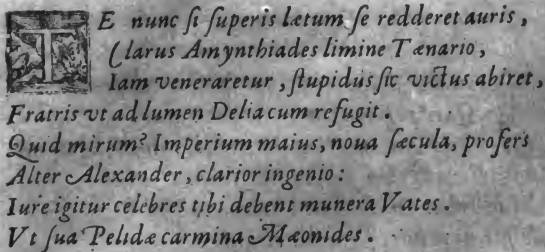 TE nunc ſi ſuperis lætum ſe redderet auris,
Clarus Amynthiades limine Tænario,
Iam veneraretur, ſtupidus ſic victus abiret,
Fratris vt ad lumen Deliacum refugit.
Quid mirum? Imperium maius, noua ſæcula, profers
Alter Alexander, clarior ingenio:
Iure igitur celebres tibi debent munera Vates.
Vt ſua Pelidæ carmina Mæonides.